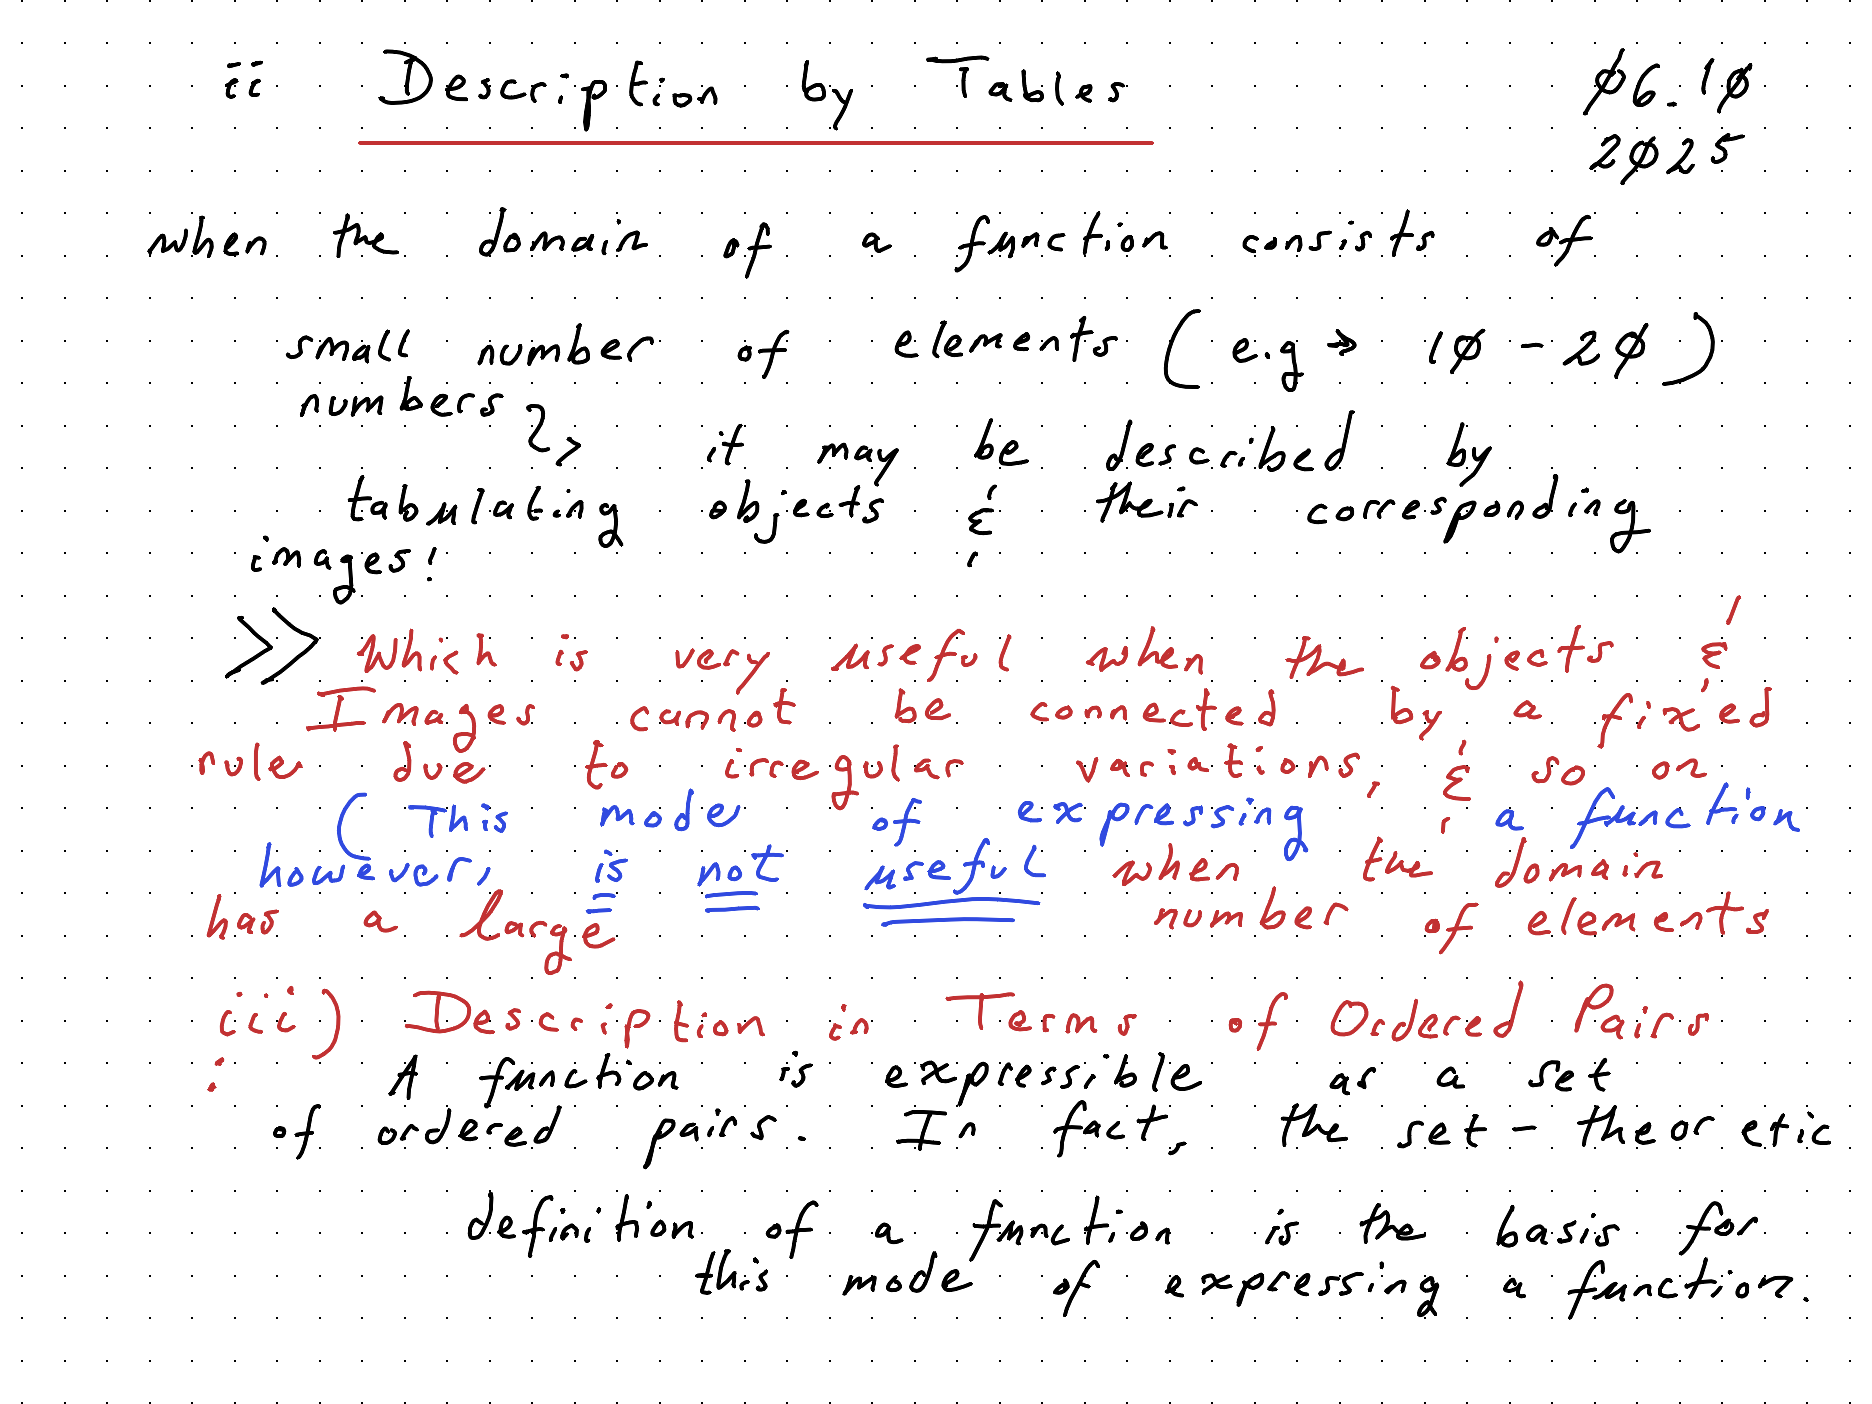 ii Description by Tables 06.10
2025
when the domain of a function consists of
small number of elements (e.g → 10 - 20)
numbers
it may be described by
tabulating objects & their corresponding
images!
>> Which is very useful when the objects &
Images cannot be connected by a fixed
rule due to irregular variations, & so on
(This mode of expressing a function
however, is not useful when the domain
has a large number of elements
iii) Description in Terms of Ordered Pairs
: A function is expressible as a set
of ordered pairs. In fact, the set-theoretic
definition of a function is the basis for
this mode of expressing a function.